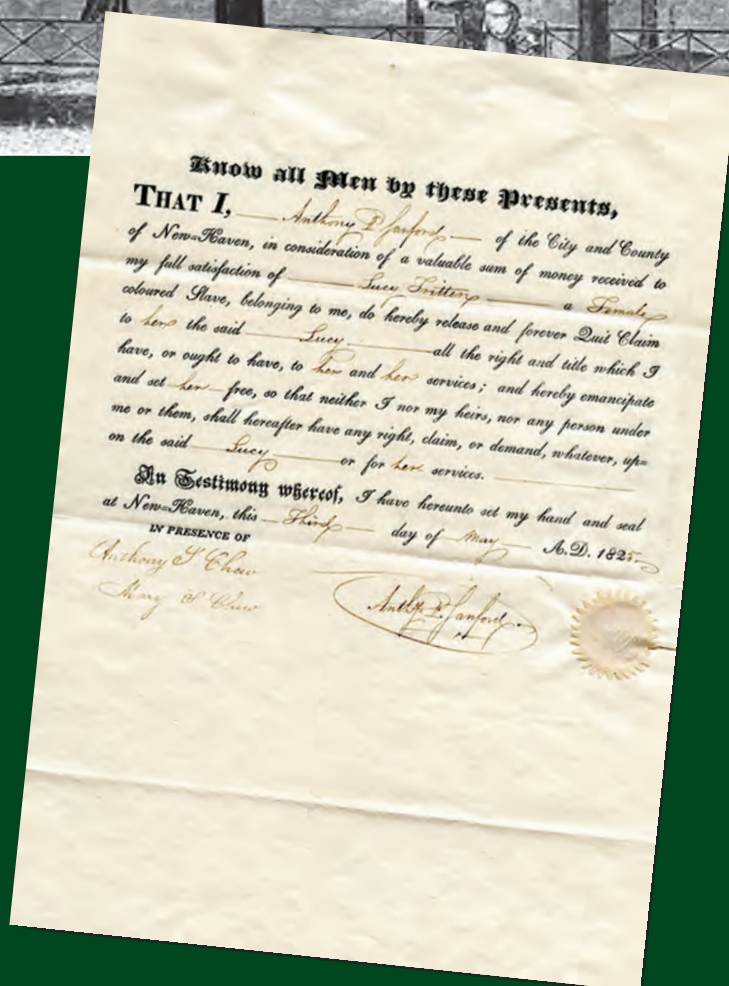 Know all Men by these Presents,
THAT I, Anthony P Sanford of the City and County
of New=Haven, in consideration of a valuable sum of money received to
my full satisfaction of Lucy Tritten a Female
coloured Slave, belonging to me, do hereby release and forever Quit Claim
to her the said Lucy all the right and title which I
have, or ought to have, to her and her services; and hereby emancipate
and set her free, so that neither I nor my heirs, nor any person under
me or them, shall hereafter have any right, claim, or demand, whatever, up=
on the said Lucy or for her services.
In Testimony whereof, I have hereunto set my hand and seal
at New=Haven, this Third day of May A.D. 1825
IN PRESENCE OF
Anthony S Chew
Mary S Chew
Anthy P. Sanford.